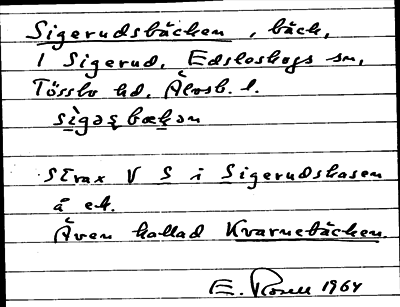 Sigerudsbäcken, bäck,
i Sigerud, Edsleskogs sn,
Tössbo hd, Älvsb. l.
Strax V S i Sigerudskasen
å ek.
Även kallad Kvarnebäcken.
E. Rosell 1964